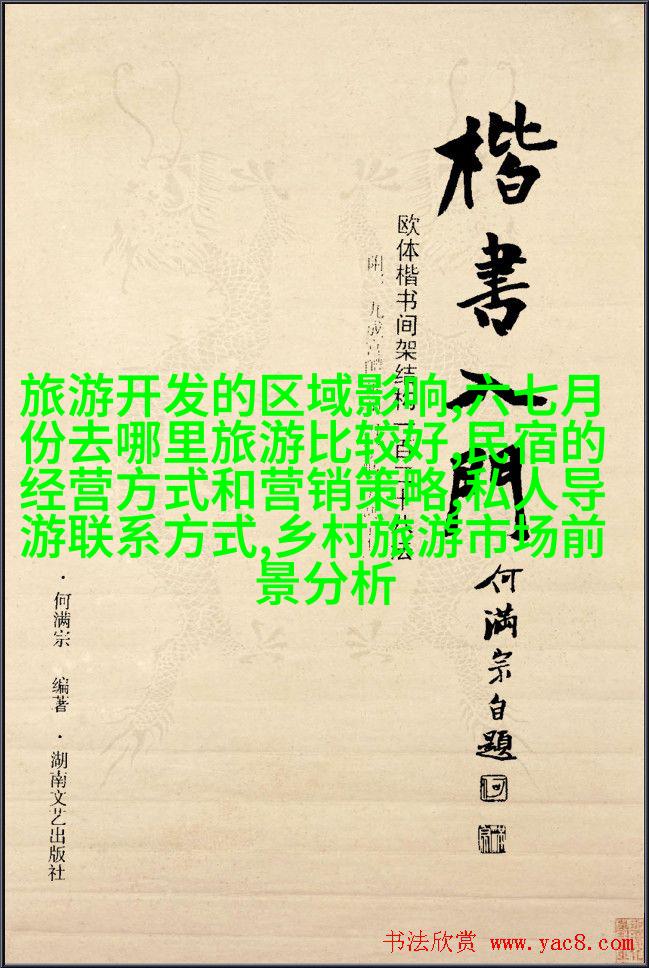 楷書入門
欧体楷书间架结构一百二十八法
何满宗自題
旅游开发的区域影响,六七月
份去哪里旅游比较好,民宿的
经营方式和营销策略,私人导
游联系方式,乡村旅游市场前
景分析
·何满宗 编著·湖南文艺出版社
书法欣赏 www.yac8.com